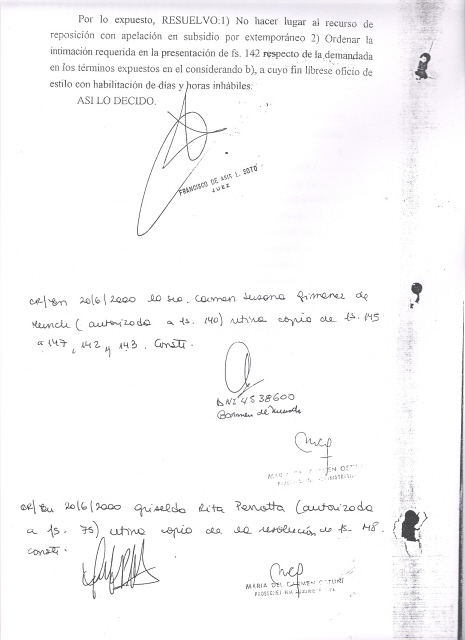 Por lo expuesto, RESUELVO:1) No hacer lugar al recurso de
reposición con apelación en subsidio por extemporáneo 2) Ordenar la
intimación requerida en la presentación de fs. 142 respecto de la demandada
en los términos expuestos en el considerando b), a cuyo fin líbrese oficio de
estilo con habilitación de días y horas inhábiles.
ASI LO DECIDO.
FRANCISCO DE ASIS L. SOTO
JUEZ
En 20/6/2000 la sra. Carmen Susana Gimenez de
(autorizada a fs. 140) retira copia de fs. 145
a 147, 142 y 143. Conste.
DNI 4538600
Carmen de
En 20/6/2000 Griselda Rita Perrotta (autorizada
a fs. 75) retira copia de la resolución de fs. 148.
conste.
MARIA DEL CARMEN